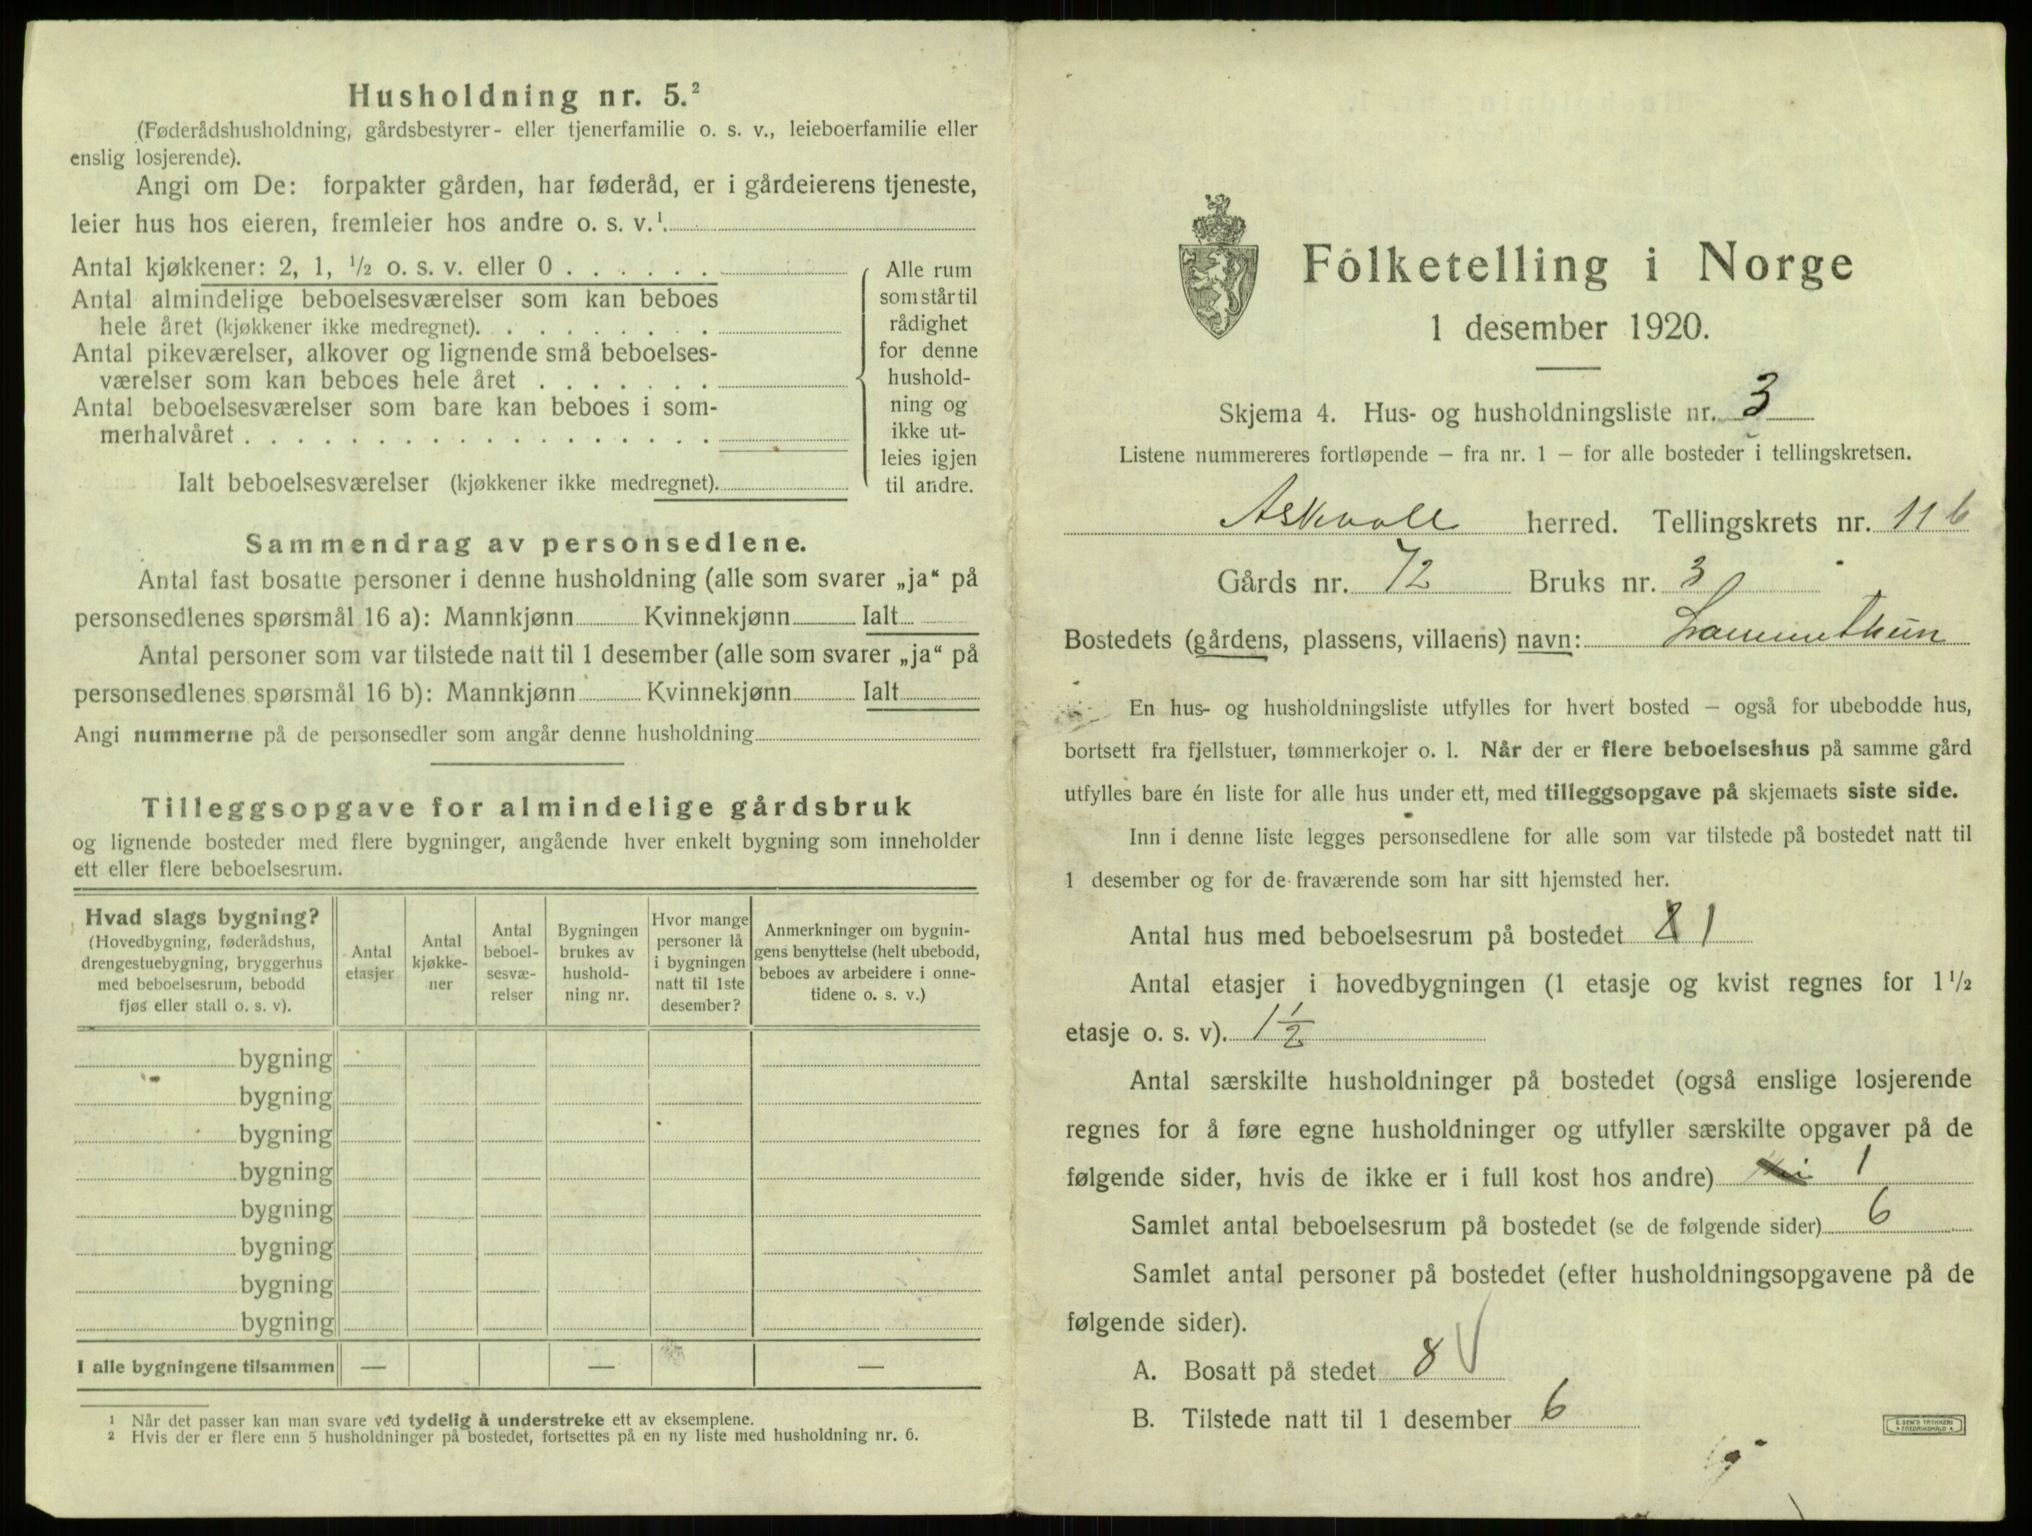 Husholdning nr. 5.²
(Føderådshusholdning, gårdsbestyrer- eller tjenerfamilie o. s. v., leieboerfamilie eller
enslig losjerende).
Angi om De: forpakter gården, har føderåd, er i gårdeierens tjeneste,
leier hus hos eieren, fremleier hos andre o. s. v.¹
Antal kjøkkener: 2, 1, ½ o. s. v. eller 0 . . . . . .
Antal almindelige beboelsesværelser som kan beboes
hele året (kjøkkener ikke medregnet). . . . . . . . .
Antal pikeværelser, alkover og lignende små beboelses-
værelser som kan beboes hele året . . . . . . .
Antal beboelsesværelser som bare kan beboes i som-
merhalvåret . . . . . . . . . . . . . . . . . .
Ialt beboelsesværelser (kjøkkener ikke medregnet).
Alle rum
som står til
rådighet
for denne
hushold-
ning og
ikke ut-
leies igjen
til andre.
Sammendrag av personsedlene.
Antal fast bosatte personer i denne husholdning (alle som svarer „ja“ på
personsedlenes spørsmål 16 a): Mannkjønn Kvinnekjønn Ialt
Antal personer som var tilstede natt til 1 desember (alle som svarer „ja“ på
personsedlenes spørsmål 16 b): Mannkjønn Kvinnekjønn Ialt
Angi nummerne på de personsedler som angår denne husholdning
Tilleggsopgave for almindelige gårdsbruk
og lignende bosteder med flere bygninger, angående hver enkelt bygning som inneholder
ett eller flere beboelsesrum.
Hvad slags bygning?
(Hovedbygning, føderådshus,
drengestuebygning, bryggerhus
med beboelsesrum, bebodd
fjøs eller stall o. s. v).
Antal
etasjer
Antal
kjøkke-
ner
Antal
beboel-
sesvæ-
relser
Bygningen
brukes av
hushold-
ning nr.
Hvor mange
personer lå
i bygningen
natt til 1ste
desember?
Anmerkninger om bygnin-
gens benyttelse (helt ubebodd,
beboes av arbeidere i onne-
tidene o. s. v.)
bygning
bygning
bygning
bygning
bygning
bygning
bygning
bygning
I alle bygningene tilsammen — — —
¹ Når det passer kan man svare ved tydelig å understreke ett av eksemplene.
² Hvis der er flere enn 5 husholdninger på bostedet, fortsettes på en ny liste med husholdning nr. 6.
Folketelling i Norge
1 desember 1920.
Skjema 4. Hus- og husholdningsliste nr. 3
Listene nummereres fortløpende — fra nr. 1 — for alle bosteder i tellingskretsen.
Askvoll herred. Tellingskrets nr. 11 b
Gårds nr. 72 Bruks nr. 3
Bostedets (gårdens, plassens, villaens) navn:
En hus- og husholdningsliste utfylles for hvert bosted — også for ubebodde hus,
bortsett fra fjellstuer, tømmerkojer o. l. Når der er flere beboelseshus på samme gård
utfylles bare én liste for alle hus under ett, med tilleggsopgave på skjemaets siste side.
Inn i denne liste legges personsedlene for alle som var tilstede på bostedet natt til
1 desember og for de fraværende som har sitt hjemsted her.
Antal hus med beboelsesrum på bostedet 1
Antal etasjer i hovedbygningen (1 etasje og kvist regnes for 1 ½
etasje o. s. v). 1 ½
Antal særskilte husholdninger på bostedet (også enslige losjerende
regnes for å føre egne husholdninger og utfyller særskilte opgaver på de
følgende sider, hvis de ikke er i full kost hos andre) 1
Samlet antal beboelsesrum på bostedet (se de følgende sider) 6
Samlet antal personer på bostedet (efter husholdningsopgavene på de
følgende sider).
A. Bosatt på stedet 8
B. Tilstede natt til 1 desember 6
E. SEM'S TRYKKERI
FREDRIKSHALD